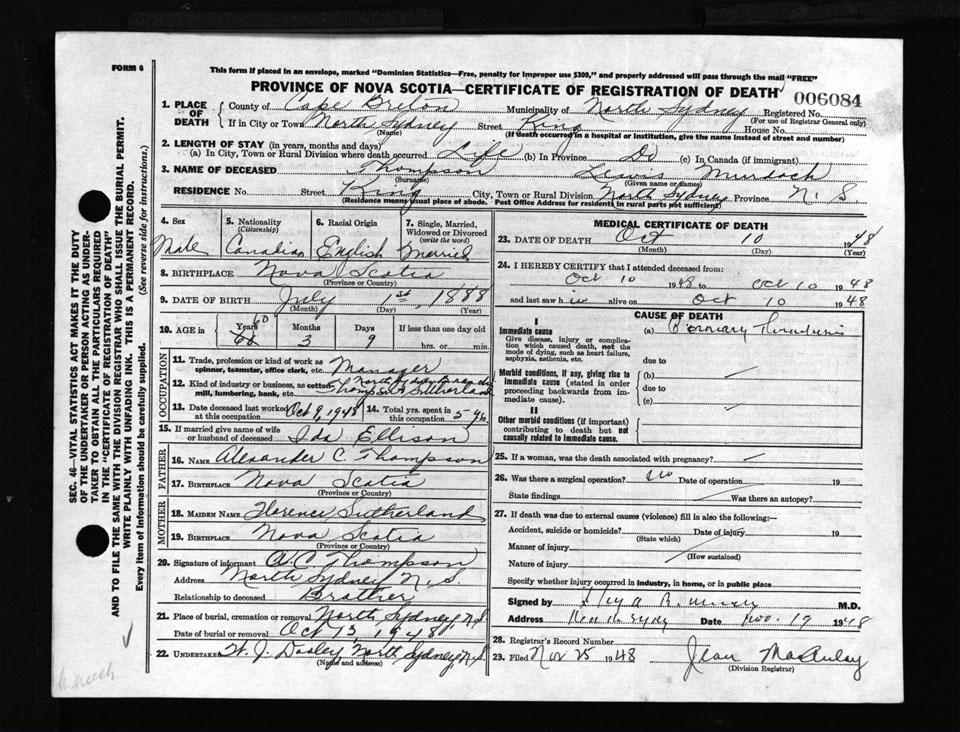 FORM 6
This form if placed in an envelope, marked "Dominion Statistics—Free, penalty for improper use $300," and properly addressed will pass through the mail "FREE"
PROVINCE OF NOVA SCOTIA—CERTIFICATE OF REGISTRATION OF DEATH
006084
1. PLACE OF DEATH { County of Cape Breton Municipality of North Sydney Registered No.
(For use of Registrar General only)
If in City or Town North Sydney Street King House No.
(Name) (If death occurred in a hospital or institution, give the name instead of street and number)
2. LENGTH OF STAY (in years, months and days)
(a) In City, Town or Rural Division where death occurred Life (b) In Province Do (c) In Canada (if immigrant)
3. NAME OF DECEASED Thompson Lewis Murdoch
(Surname) (Given name or names)
RESIDENCE No. Street King City, Town or Rural Division North Sydney Province N.S
(Residence means usual place of abode. Post Office Address for residents in rural parts not sufficient)
4. Sex Male
5. Nationality (Citizenship) Canadian
6. Racial Origin English
7. Single, Married, Widowed or Divorced (write the word) Married
8. BIRTHPLACE Nova Scotia
(Province or Country)
9. DATE OF BIRTH July 1st, 1888
(Month) (Day) (Year)
10. AGE in Years 60 Months 3 Days 9 If less than one day old hrs. or min.
OCCUPATION
11. Trade, profession or kind of work as spinner, teamster, office clerk, etc. Manager
12. Kind of industry or business, as cotton mill, lumbering, bank, etc. Thompson & Sutherland
13. Date deceased last worked at this occupation Oct 9, 1948 14. Total yrs. spent in this occupation
15. If married give name of wife or husband of deceased Ida Ellison
FATHER
16. NAME Alexander C. Thompson
17. BIRTHPLACE Nova Scotia
(Province or Country)
MOTHER
18. MAIDEN NAME Florence Sutherland
19. BIRTHPLACE Nova Scotia
(Province or Country)
20. Signature of informant A.C. Thompson
Address North Sydney N.S.
Relationship to deceased Brother
21. Place of burial, cremation or removal North Sydney, N.S
Date of burial or removal Oct 13, 1948
22. UNDERTAKER W. J. Dooley, North Sydney, N.S.
(Name and address)
MEDICAL CERTIFICATE OF DEATH
23. DATE OF DEATH Oct 10 1948
(Month) (Day) (Year)
24. I HEREBY CERTIFY that I attended deceased from:
Oct 10 1948 to Oct 10 1948
and last saw h im alive on Oct 10 1948
CAUSE OF DEATH
I
Immediate cause
Give disease, injury or complication which caused death, not the mode of dying, such as heart failure, asphyxia, asthenia, etc.
(a) Coronary Thrombosis
due to
Morbid conditions, if any, giving rise to immediate cause (stated in order proceeding backwards from immediate cause).
(b)
due to
(c)
II
Other morbid conditions (if important) contributing to death but not causally related to immediate cause.
25. If a woman, was the death associated with pregnancy?
26. Was there a surgical operation? No Date of operation 19
State findings Was there an autopsy?
27. If death was due to external causes (violence) fill in also the following:
Accident, suicide or homicide? Date of injury 19
(State which)
Manner of injury
(How sustained)
Nature of injury
Specify whether injury occurred in industry, in home, or in public place
Signed by M.D.
Address Date Nov. 19 1948
28. Registrar's Record Number
23. Filed Nov 25 1948 Jean MacAulay
(Division Registrar)
SEC. 46—VITAL STATISTICS ACT MAKES IT THE DUTY
OF THE UNDERTAKER OR PERSON ACTING AS UNDER-
TAKER TO OBTAIN ALL THE PARTICULARS REQUIRED
IN THE "CERTIFICATE OF REGISTRATION OF DEATH"
AND TO FILE THE SAME WITH THE DIVISION REGISTRAR WHO SHALL ISSUE THE BURIAL PERMIT.
WRITE PLAINLY WITH UNFADING INK. THIS IS A PERMANENT RECORD.
Every item of Information should be carefully supplied. (See reverse side for instructions.)